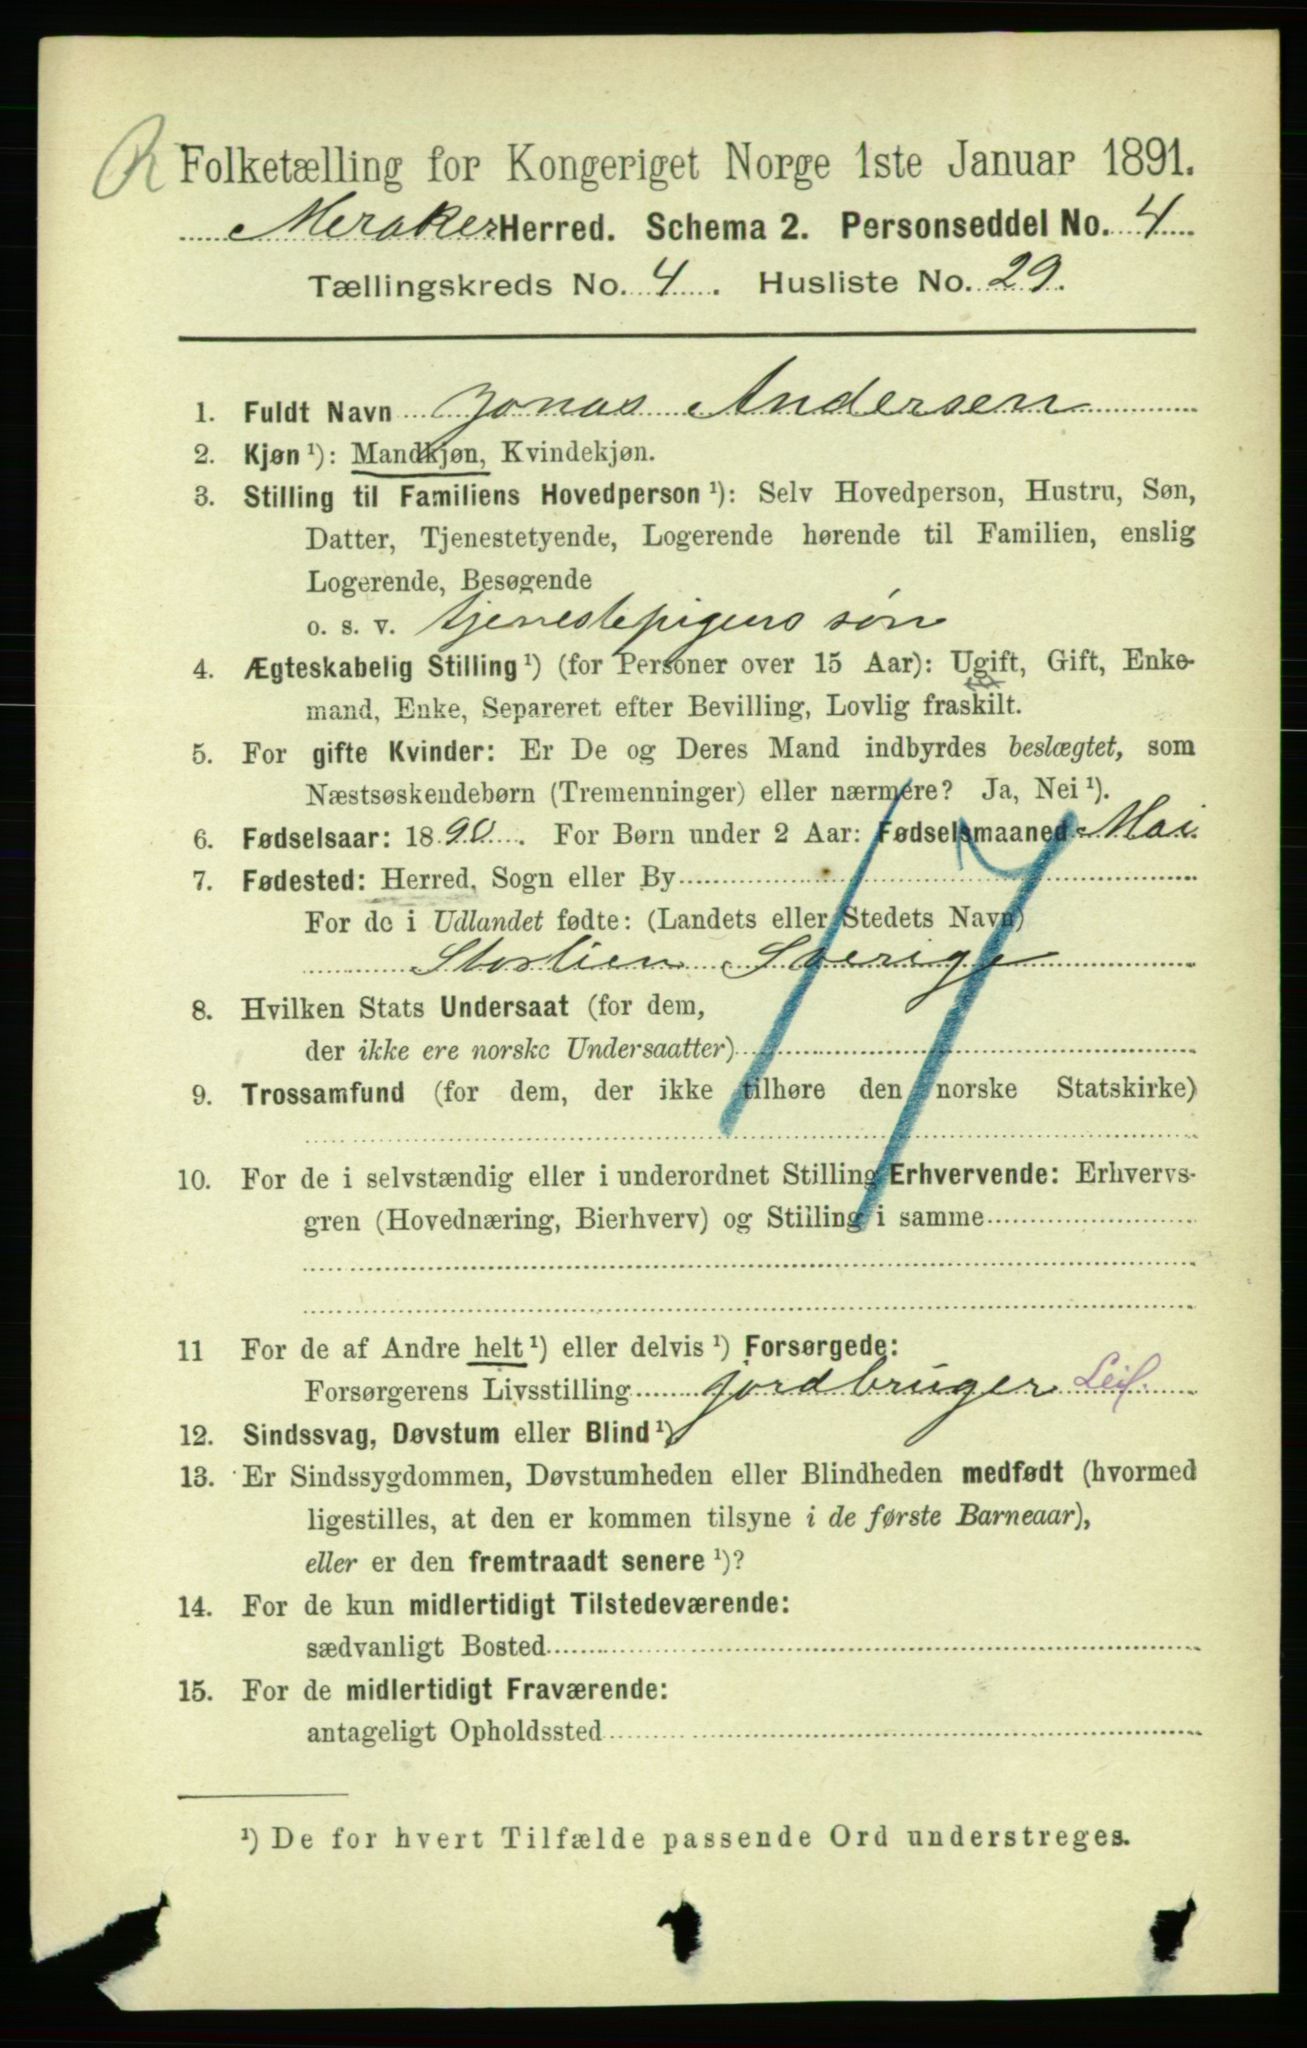 R
Folketælling for Kongeriget Norge 1ste Januar 1891.
Meraker Herred. Schema 2. Personseddel No. 4
Tællingskreds No. 4. Husliste No. 29.
1. Fuldt Navn Jonas Andersen
2. Kjøn ¹): Mandkjøn, Kvindekjøn.
3. Stilling til Familiens Hovedperson ¹): Selv Hovedperson, Hustru, Søn,
Datter, Tjenestetyende, Logerende hørende til Familien, enslig
Logerende, Besøgende
o. s. v. tjenestepigens søn
4. Ægteskabelig Stilling ¹) (for Personer over 15 Aar): Ugift, Gift, Enke-
mand, Enke, Separeret efter Bevilling, Lovlig fraskilt.
5. For gifte Kvinder: Er De og Deres Mand indbyrdes beslægtet, som
Næstsøskendebørn (Tremenninger) eller nærmere? Ja, Nei ¹).
6. Fødselsaar: 1890. For Børn under 2 Aar: Fødselsmaaned Mai.
7. Fødested: Herred, Sogn eller By
For de i Udlandet fødte: (Landets eller Stedets Navn)
Storlien Sverige
8. Hvilken Stats Undersaat (for dem,
der ikke ere norske Undersaatter)
9. Trossamfund (for dem, der ikke tilhøre den norske Statskirke)
10. For de i selvstændig eller i underordnet Stilling Erhvervende: Erhvervs-
gren (Hovednæring, Bierhverv) og Stilling i samme
11 For de af Andre helt ¹) eller delvis ¹) Forsørgede:
Forsørgerens Livsstilling jordbruger Leil.
12. Sindssvag, Døvstum eller Blind ¹)
13. Er Sindssygdommen, Døvstumheden eller Blindheden medfødt (hvormed
ligestilles, at den er kommen tilsyne i de første Barneaar),
eller er den fremtraadt senere ¹)?
14. For de kun midlertidigt Tilstedeværende:
sædvanligt Bosted
15. For de midlertidigt Fraværende:
antageligt Opholdssted
¹) De for hvert Tilfælde passende Ord understreges.